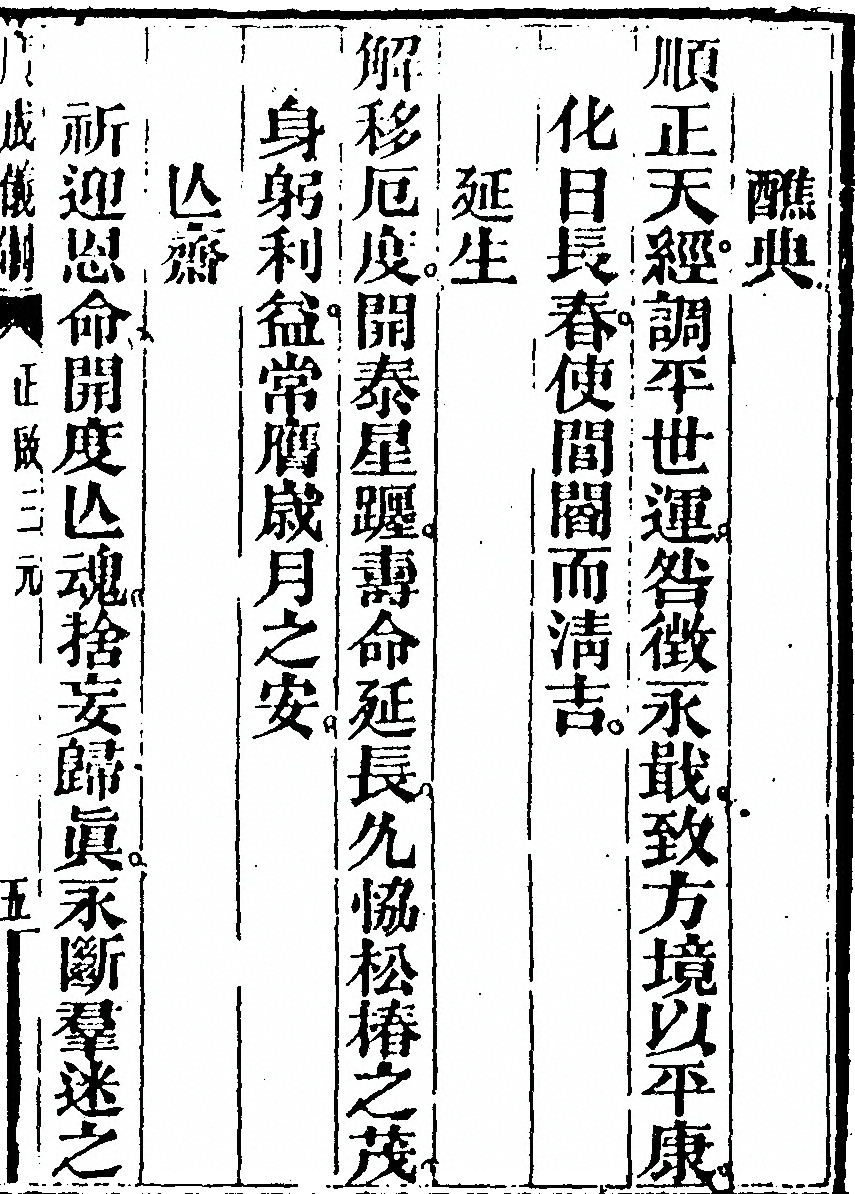 醮典
順正天經。調平世運。咎徵永戢。致方境以平康。
化日長春。使閭閻而淸吉。
延生
解移厄度。開泰星躔。壽命延長。允恊松椿之茂。
身躬利益。常膺歲月之安。
亾齋
祈迎恩命。開度亾魂。捨妄歸眞。永斷羣迷之
廣成儀制 正啟三元 五